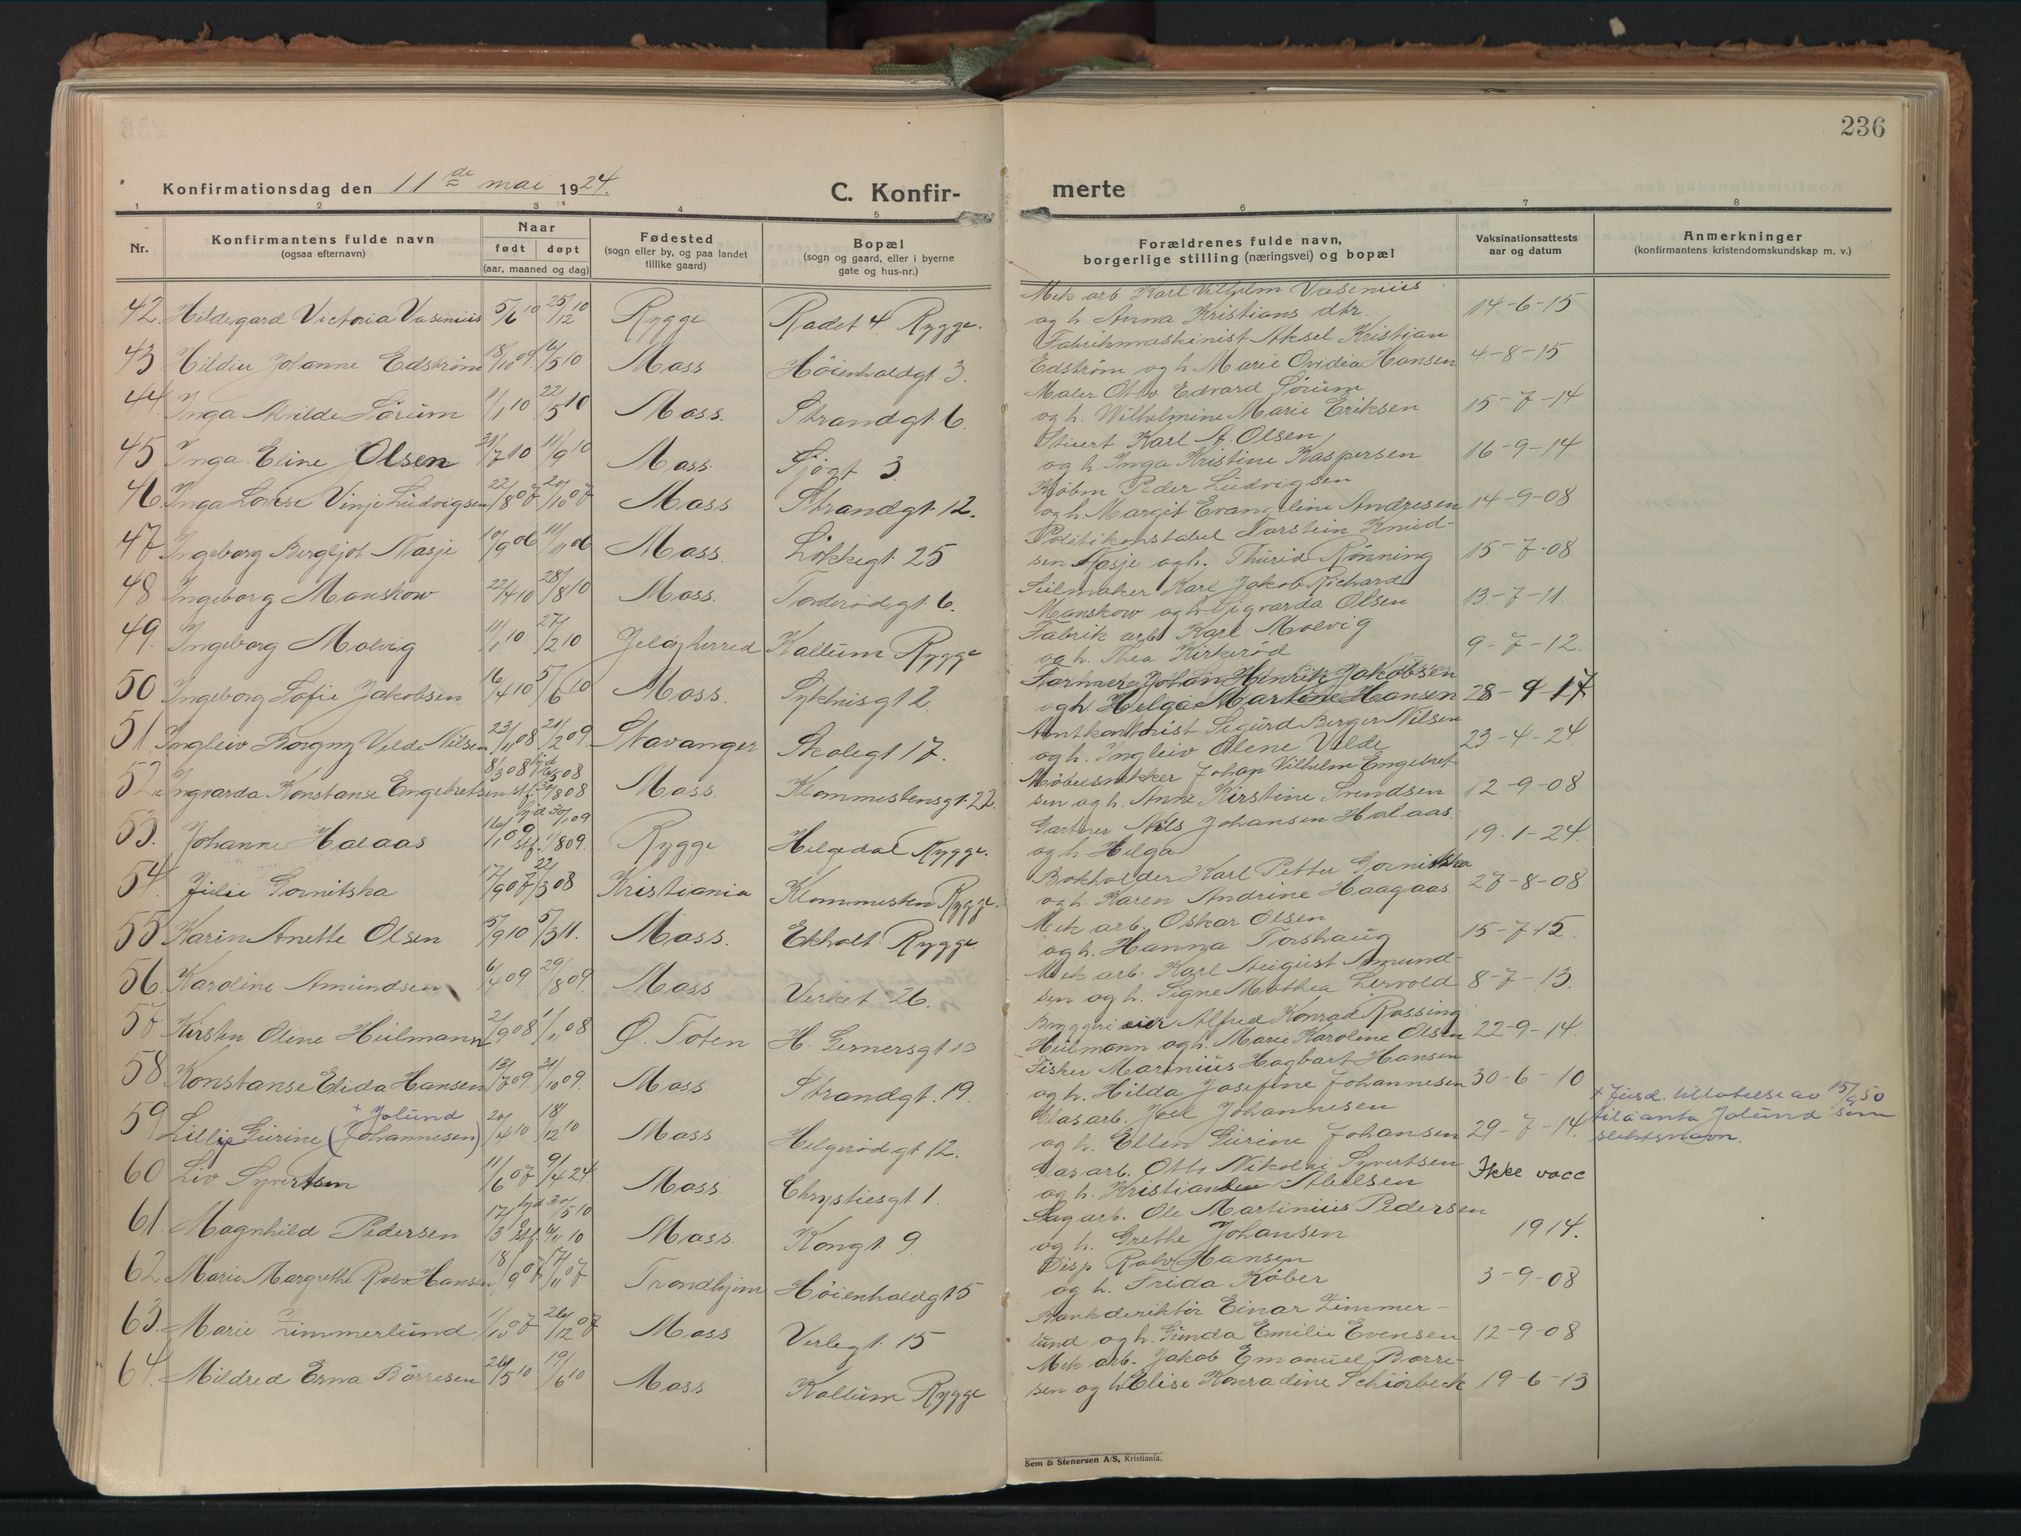 236
Konfirmationsdag den 11de mai 1924.
C. Konfir-
merte
1 2 3 4 5 6 7 8
Nr.
Konfirmantens fulde navn
(ogsaa efternavn)
Naar
født døpt
(aar, maaned og dag)
Fødested
(sogn eller by, og paa landet
tillike gaard)
Bopæl
(sogn og gaard, eller i byerne
gate og hus-nr.)
Forældrenes fulde navn,
borgerlige stilling (næringsvei) og bopæl
Vaksinationsattests
aar og datum
Anmerkninger
(konfirmantens kristendomskundskap m. v.)
42. Hildegard Victoria Vasenius 5/6 10 25/12 10 Rygge Radet 4. Rygge.
Mek arb Karl Vilhelm Vasenius
og h. Anna Kristians dtr. 14-6-15
43 Hildur Johanne Edstrøm 18/10 09. Moss Høienhaldgt 3.
Fabrikmaskinist Aksel Kristian
Edstrøm og h. Marie Ovidia Hansen 4-8-15
44. Inga Alvilde Sørum 11/1 10 22/5 10 Moss. Strandgt 6.
Maler Otto Edvard Sørum
og h. Wilhelmine Marie Eriksen 15-7-14
45 Inga Eline Olsen 31/7 10 11/9 10 Moss Sjøgt 3
Stuert Karl A. Olsen
og h. Inga Kristine Kaspersen 16-9-14
46 Inga Lovise Vinje Ludvigsen 22/8 07 20/10 07 Moss Strandgt 12.
Kjøbm Peder Ludvigsen
og h. Margit Evangeline Andresen 14-9-08
47 Ingeborg Bergljot Nasje 10/9 06 11/11 06 Moss. Løkkegt 25
Politikonstabel Torstein Knud-
sen Nasje og h. Thurid Rønning 15-7-08
48 Ingeborg Manskow 22/4 10 28/8 10 Moss. Torderødgt 6.
Seilmaker Karl Jakob Richard
Manskow og h. Sigvarda Olsen 13-7-11.
49. Ingeborg Molvig 11/1 10 27/2 10 Jeløy herred Kallum Rygge
Fabrik arb Karl Molvig
og h. Thea Kirkerød 9-7-12.
50 Ingeborg Sofie Jakobsen 16/4 10 5/6 10 Moss. Sykhusgt 2.
Farmer Johan Henrik Jakobsen
og h Helga Martine Hansen 28-9-17
51. Ingleiv Borgny Velde Nilsen 23/11 08 21/2 09 Stavanger Skolegt 17.
Amtkontorist Sigurd Berger Nilsen
og h. Ingleiv Olene Velde 23-4-24
52 Ingvarda Konstanse Engebretsen 8/3 08 stf. 30/8 08 Moss. Klommestensgt. 22.
Møbelsnekker Johan Vilhelm Engebret-
sen og h. Anne Kirstine Svendsen 12-9-08
53. Johanne Halaas 16/1 09 hjd 30/1 09 stf. 1/8 09. Rygge Helgedal Rygge.
Gartner Nils Johansen Halaas.
og h. Helga 19.1-24.
54. Julie Gornitska 17/9 07 22/3 08 Kristiania Klommesten Rygge.
Bokholder Karl Petter Gornitska
og h. Karen Andrine Haagaas 27-8-08
55 Karin Anette Olsen 5/9 10 5/3 11. Moss. Ekholt Rygge
Mek arb. Oskar Olsen
og h. Hanna Torshaug 15-7-15.
56. Karoline Amundsen 6/4 09. 29/8 09. Moss Verket 26.
Mek arb. Karl August Amund-
sen og h. Signe Mathea Lervold 8-7-13.
57 Kirsten Oline Heilmann 2/9 08 1/11 08 Ø. Toten H. Gernersgt
Bryggeri eier Alfred Konrad Rossing
Heilmann og h. Marie Karoline Olsen 22-9-14.
58 Konstanse Elida Hansen 13/7 09. 31/10 09. Moss Strandgt. 19.
Fisker Marinius Hagbart Hansen
og h. Hilda Josefine Johannesen 30-6-10
+ Jolund
59 Lilly Gurine (Johannesen) 20/4 10 18/12 10 Moss Helgerødgt 12.
Glasarb. Joel Johannesen
og h. Ellen Gurine Johansen 29-7-14.
+ Jusd. tillatelse av 15/9 50
til å anta Jolund som
slektsnavn.
60 Liv Syvertsen 11/6 07 9/4 24 Moss Chrystiesgt 1.
Glasarb. Otto Nikolai Syvertsen
og h. Nilsen Ikke vacc
61. Magnhild Pedersen hjd 30/5 10 stf. 6/11 10 Moss Kongt 9.
Sagarb. Ole Martinius Pedersen
og h. Grethe Johansen 1914.
62 Marie Margrethe Rolv Hansen 18/9 07 17/11 07 Trondhjem Høienhaldgt 5
Disp Rolv Hansen
og h. Frida Køber 3-9-08
63. Marie Zimmerlund 1/10 07 26/12 07 Moss Verlegt 15
Bankdirektør Einar Zimmer-
lund og h. Gunda Emilie Evensen 12-9-08
64. Mildred Erna Børresen 26/5 10 19/6 10 Moss Kallum Rygge
Mek arb. Jakob Emanuel Børre-
sen og h Elise Konradine Schiørbeck 19-6-13
Sem & Stenersen A/S, Kristiania.